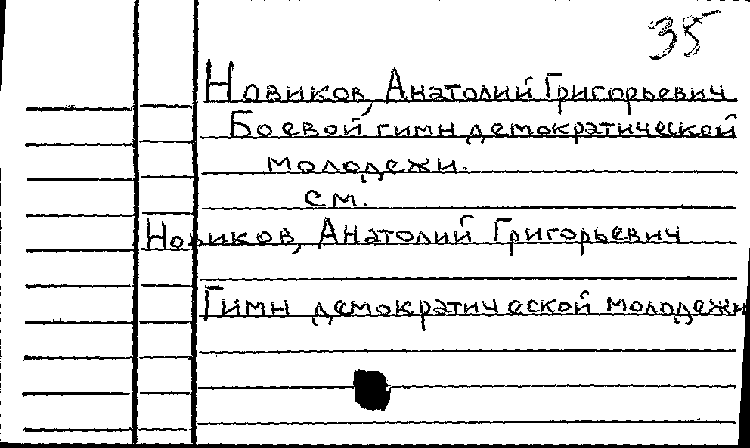 35
Новиков, Анатолий Григорьевич
Боевой гимн демократической
молодежи.
см.
Новиков, Анатолий Григорьевич
Гимн демократической молодежи